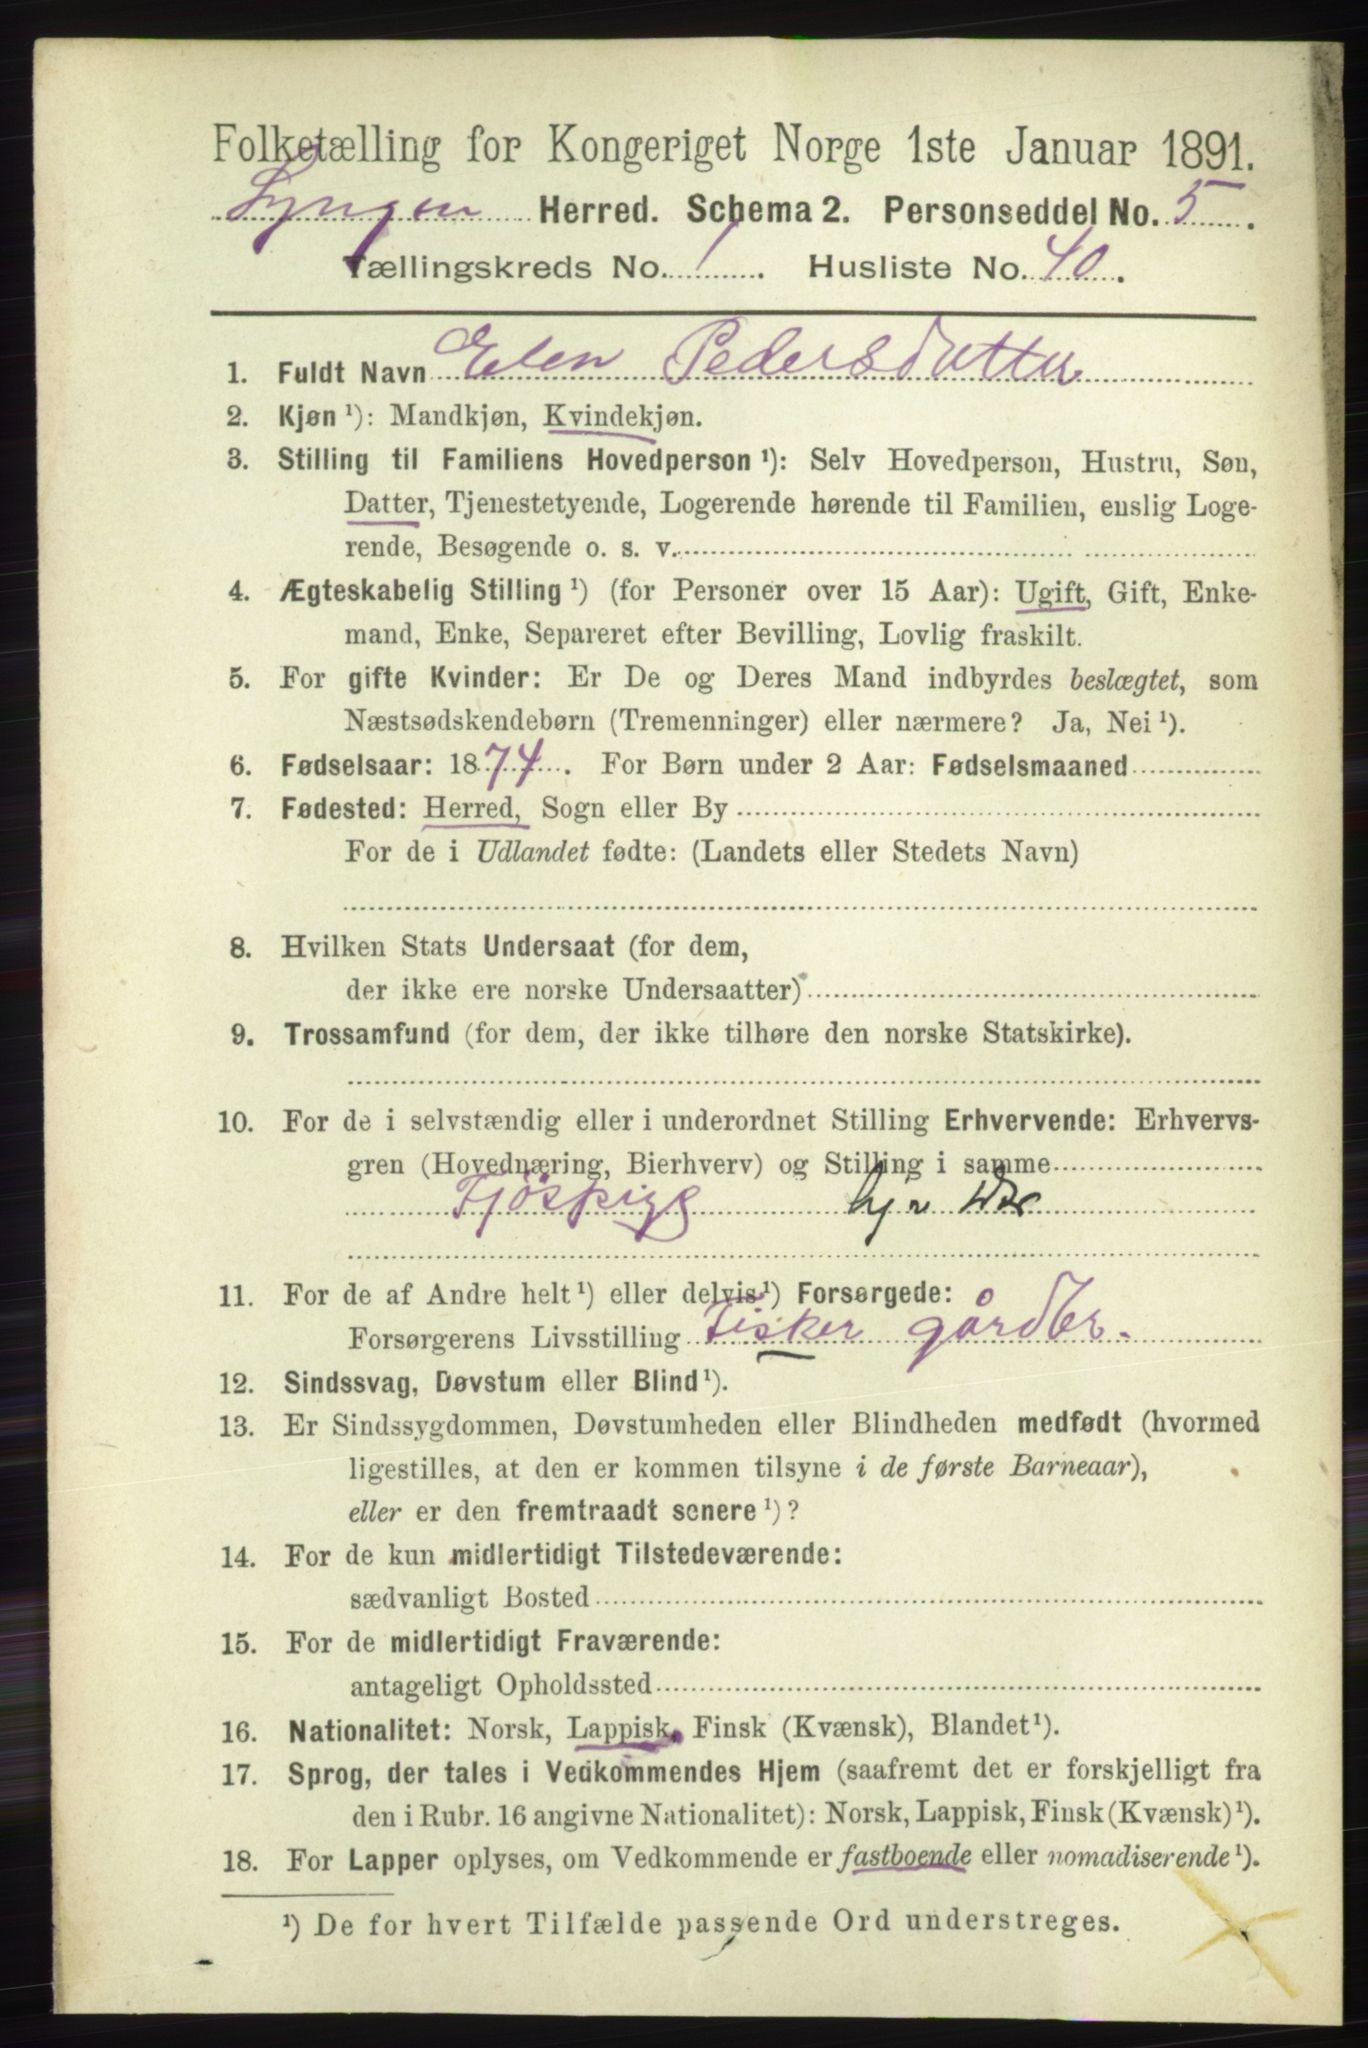 Folketælling for Kongeriget Norge 1ste Januar 1891.
Lyngen Herred. Schema 2. Personseddel No. 5.
Tællingskreds No. 1. Husliste No. 40.
1. Fuldt Navn Elen Pedersdatter
2. Kjøn ¹): Mandkjøn, Kvindekjøn.
3. Stilling til Familiens Hovedperson ¹): Selv Hovedperson, Hustru, Søn,
Datter, Tjenestetyende, Logerende hørende til Familien, enslig Loge-
rende, Besøgende o. s. v.
4. Ægteskabelig Stilling ¹) (for Personer over 15 Aar): Ugift, Gift, Enke-
mand, Enke, Separeret efter Bevilling, Lovlig fraskilt.
5. For gifte Kvinder: Er De og Deres Mand indbyrdes beslægtet, som
Næstsødskendebørn (Tremenninger) eller nærmere? Ja, Nei ¹).
6. Fødselsaar: 1874. For Børn under 2 Aar: Fødselsmaaned
7. Fødested: Herred, Sogn eller By
For de i Udlandet fødte: (Landets eller Stedets Navn)
8. Hvilken Stats Undersaat (for dem,
der ikke ere norske Undersaatter)
9. Trossamfund (for dem, der ikke tilhøre den norske Statskirke).
10. For de i selvstændig eller i underordnet Stilling Erhvervende: Erhvervs-
gren (Hovednæring, Bierhverv) og Stilling i samme
Fjöspige
11. For de af Andre helt ¹) eller delvis ¹) Forsørgede:
Forsørgerens Livsstilling Fisker gårdbr.
12. Sindssvag, Døvstum eller Blind ¹).
13. Er Sindssygdommen, Døvstumheden eller Blindheden medfødt (hvormed
ligestilles, at den er kommen tilsyne i de første Barneaar),
eller er den fremtraadt senere ¹)?
14. For de kun midlertidigt Tilstedeværende:
sædvanligt Bosted
15. For de midlertidigt Fraværende:
antageligt Opholdssted
16. Nationalitet: Norsk, Lappisk, Finsk (Kvænsk), Blandet ¹).
17. Sprog, der tales i Vedkommendes Hjem (saafremt det er forskjelligt fra
den i Rubr. 16 angivne Nationalitet): Norsk, Lappisk, Finsk (Kvænsk) ¹).
18. For Lapper oplyses, om Vedkommende er fastboende eller nomadiserende ¹).
¹) De for hvert Tilfælde passende Ord understreges.